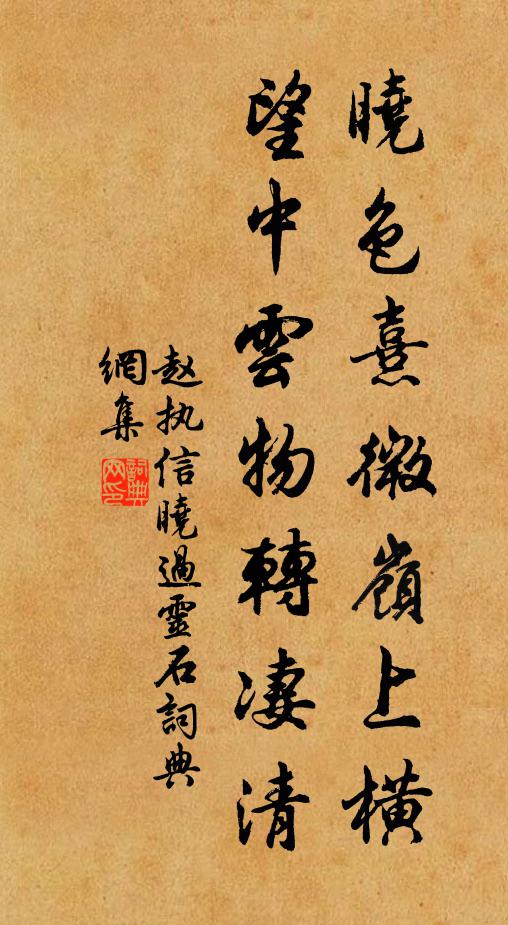 曉色熹微嶺上橫
望中雲物轉淒清
赵执信曉過靈石詞典
網集
詞典
网印